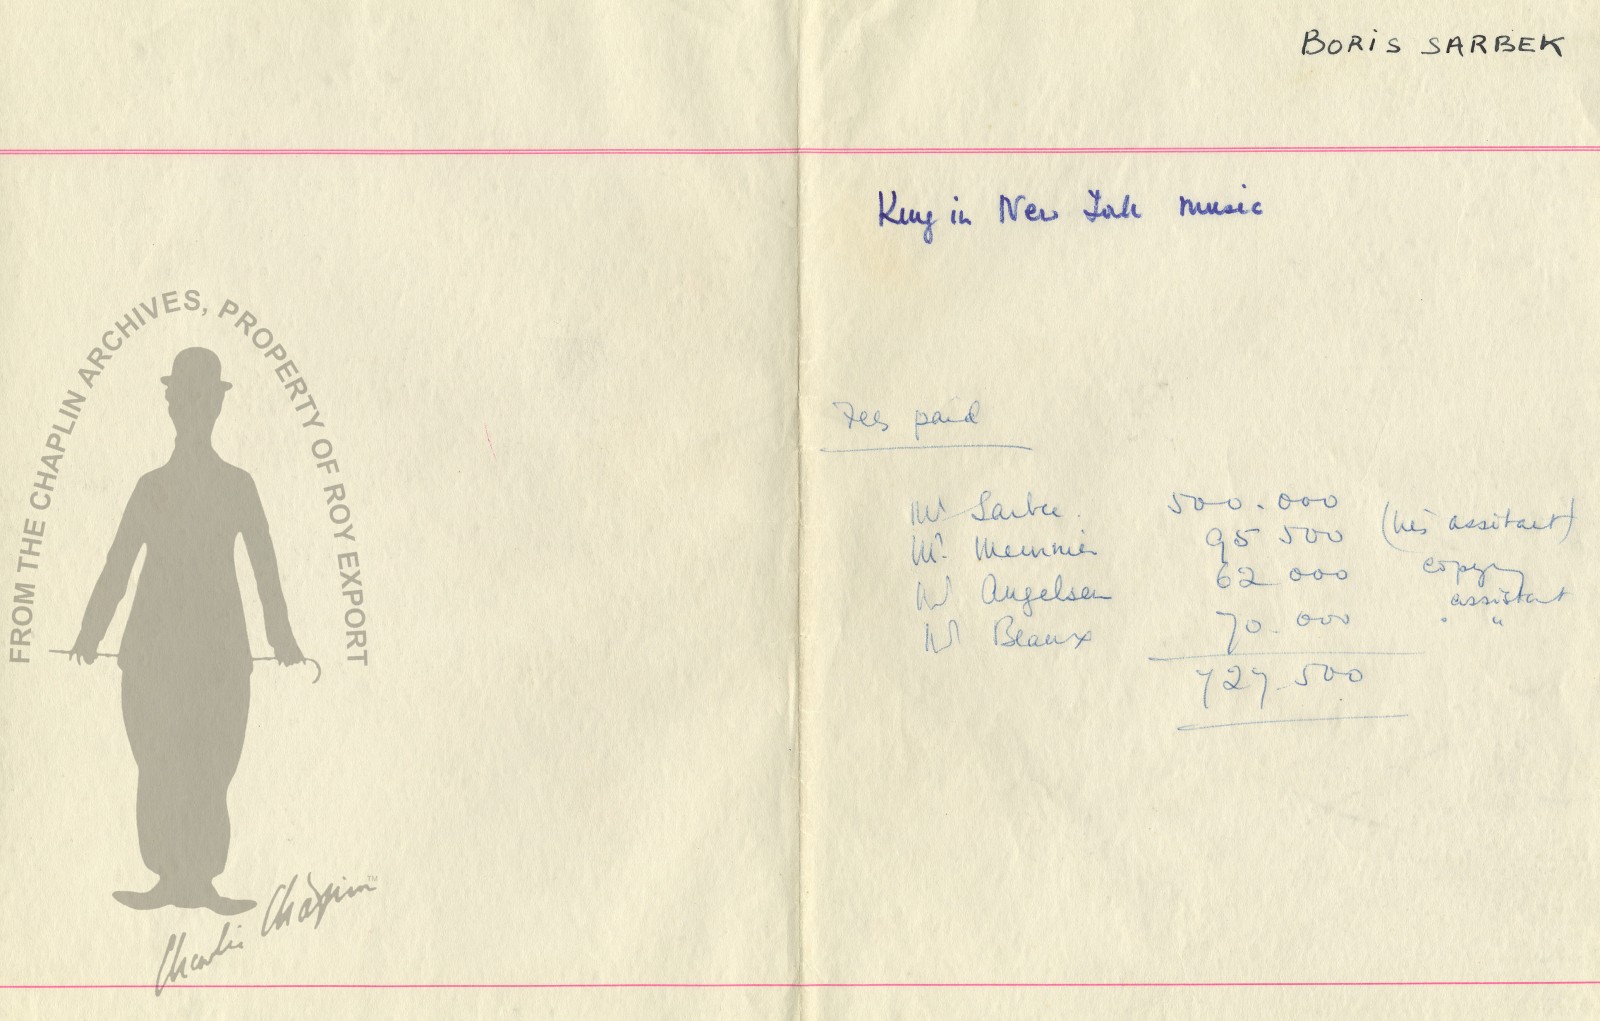 BORIS SARBEK
King in New York music
FROM THE CHAPLIN ARCHIVES, PROPERTY OF ROY EXPORT
Fees paid
Mr Sarbec. 500.000
Mr. Meunnier 95 500 (his assitant)
Mr Angelsen 62 000 copying assistant
Mr Beaux 70.000 " "
727.500
Charlie Chaplin™